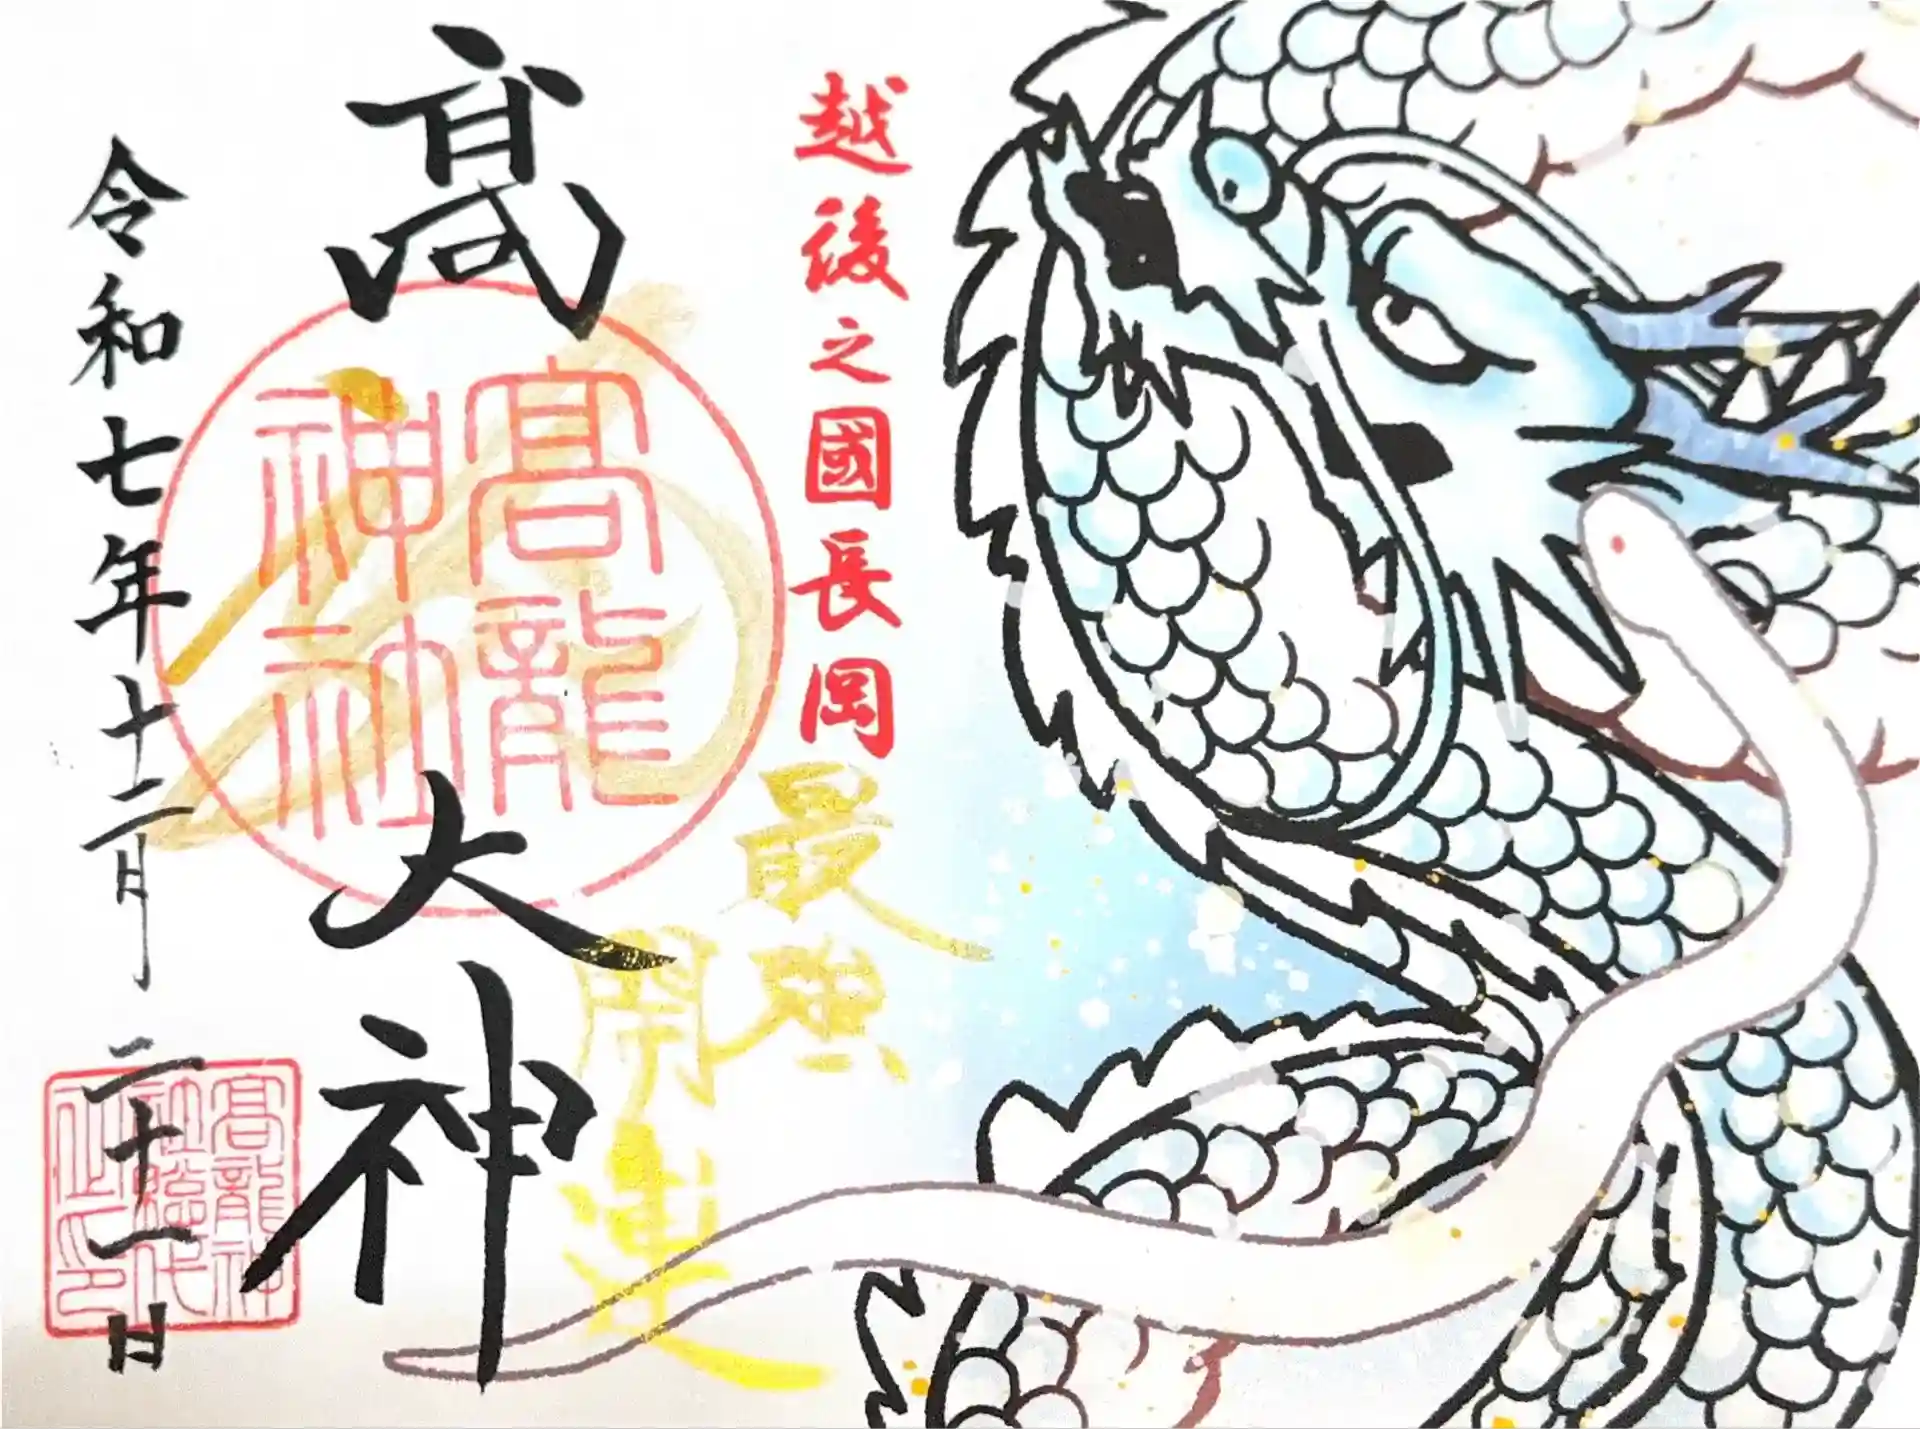 越後之國長岡
最強
開運
髙龍大神
髙龍
神社
令和七年十二月二十一日
髙龍神
社総代
之印